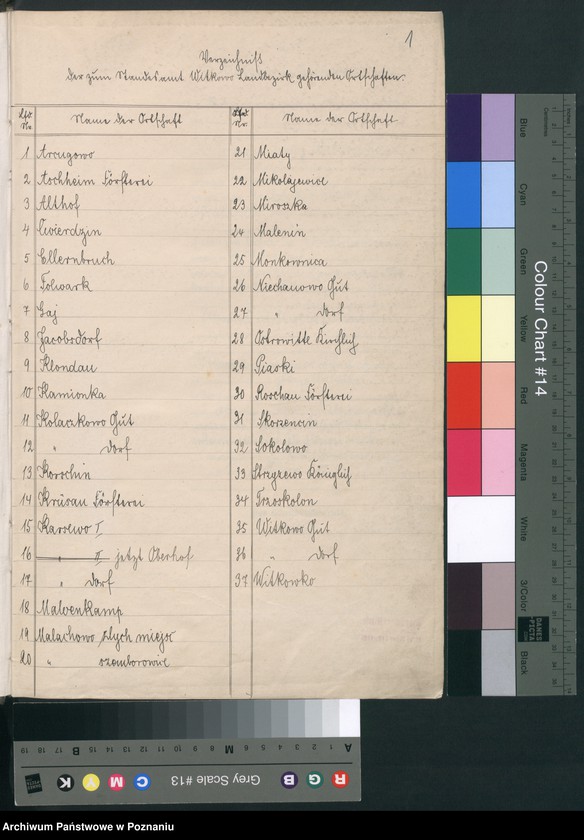 1
Verzeichniß
der zum Standesamt Witkowo Landbezirk gehörenden Ortschaften.
Lfd. Nr.
Name der Ortschaft
1 Arcugowo
2 Aschheim Försterei
3 Althof
4 Cwierdzin
5 Ellernbruch
6 Folwark
7 Gaj
8 Jacobsdorf
9 Klondau
10 Kamionka
11 Kolaczkowo Gut
12 " Dorf
13 Korschin
14 Krüsau Försterei
15 Karsewo I
16 " II jetzt Oberhof
17 " Dorf
18 Malvenkamp
19 Malachowo zlych miejsc
20 " szemborowic
Lfd. Nr.
Name der Ortschaft
21 Miaty
22 Mikolajewice
23 Miroszka
24 Malenin
25 Monkownica
26 Niechanowo Gut
27 " Dorf
28 Ostrowitte Kirchlich
29 Piaski
30 Roschau Försterei
31 Skorzencin
32 Sokolowo
33 Strzyzewo Königlich
34 Trzoskolon
35 Witkowo Gut
36 " Dorf
37 Witkowko
Colour Chart #14
Blue
Cyan
Green
Yellow
Red
Magenta
White
3/Color
Black
Centimetres
Inches
DANES PICTA
Grey Scale #13
R G B
C M Y K
A 1 2 3 4 5 6 M 8 9 10 11 12 13 14 15 B 17 18 19
Archiwum Państwowe w Poznaniu